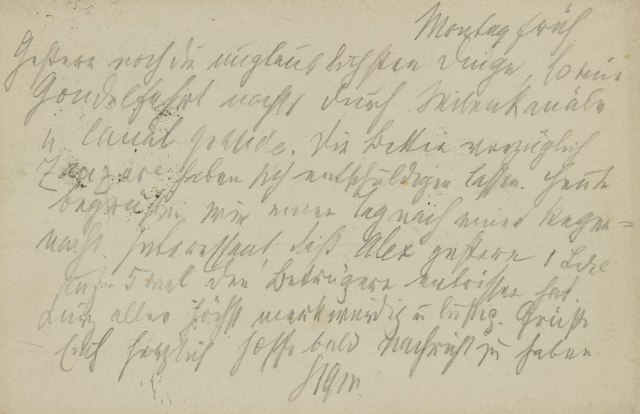 Montag früh
Gestern noch die unglaublichsten Dinge, so eine
Gondelfahrt nachts durch Seitenkanäle
u Canal grande. Die Betten vorzüglich
Zanzare haben sich entschuldigen lassen. Heute
begrüßen wir einen Tag nach einer Regen=
nacht. Interessant, daß Alex gestern 1 Lire
5 mal den Betrügern entrissen hat.
Kurz alles höchst merkwürdig u lustig. Grüße
Euch herzlich hoffe bald Nachricht zu haben
Sigm.